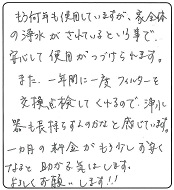 もう何年も使用していますが、家全体
の浄水がされているという事で、
安心して使用がつづけられます。
また、一年間に一度フィルターを
交換点検してくれるので、浄水
器も長持ちするんのかなと感じています。
一ヵ月の料金がもう少し安く
なると助かる気はします。
よろしくお願いします!!